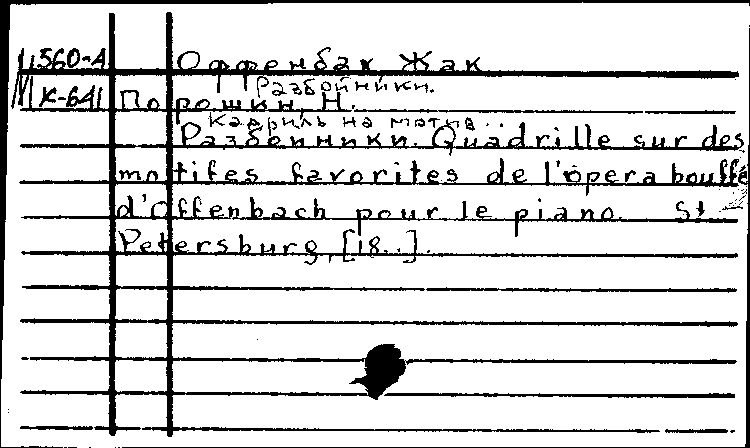 М560-А Оффенбах Жак
Разбойники.
К-641 Порошин, Н.
Кадриль на мотив...
Разбойники. Quadrille sur des
motifes favorites de l'opera bouffe
d'Offenbach pour le piano. St
Petersburg, [18..].